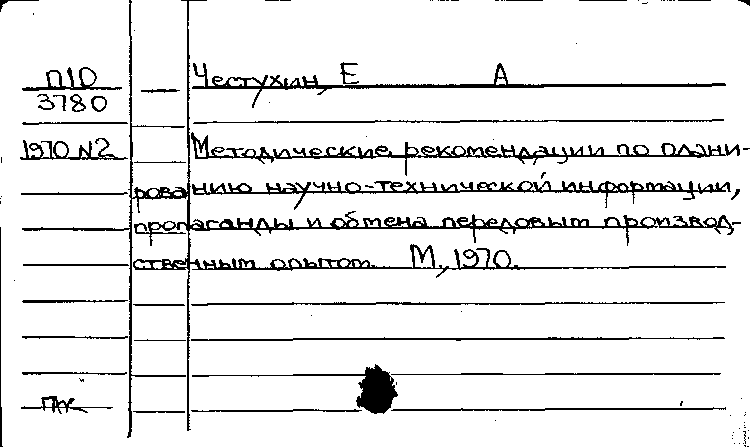 П10 Честухин, Е А
3780
1970 N2 Методические рекомендации по плани-
рованию научно-технической информации,
пропаганды и обмена передовым производ-
ственным опытом. М, 1970.